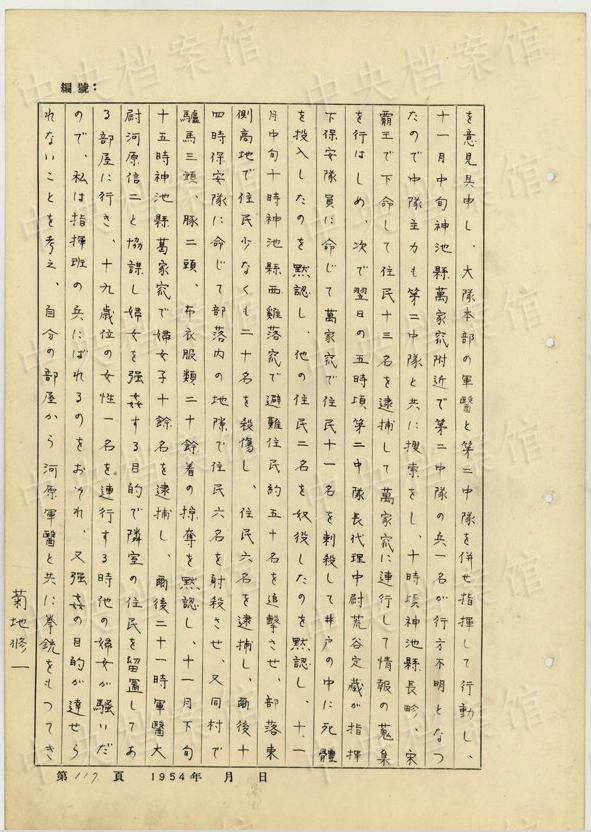 編號：
を意見具申し、大隊本部の軍醫と第二中隊を併せ指揮して行動し、
十一月中旬神池縣萬家窊附近で第二中隊の兵一名が行方不明となつ
たので中隊主力も第二中隊と共に搜索をし、十時頃神池縣長畛、宋
霸王で下命して住民十三名を逮捕して萬家窊に連行して情報の蒐集
を行はしめ、次で翌日の五時頃第二中隊長代理中尉荒谷定蔵が指揮
下保安隊員に命じて萬家窊で住民十一名を刺殺して井戸の中に死體
を投入したのを黙認し、他の住民二名を奴役したのを黙認し、十一
月中旬十時神池縣西雞落窊で避難住民約五十名を追擊させ、部落東
側高地で住民少なくも二十名を殺傷し、住民六名を逮捕し、爾後十
四時保安隊に命じて部落内の地隙で住民六名を射殺させ、又同村で
驢馬三頭、豚二頭、布衣服類二十餘着の掠奪を黙認し、十一月下旬
十五時神池縣萬家窊で婦女子十餘名を逮捕し、爾後二十一時軍醫大
尉河原信二と協謀し婦女を强姦する目的で隣室の住民を留置してあ
る部屋に行き、十九歳位の女性一名を連行する時他の婦女が騒いだ
ので、私は指揮班の兵にばれるのをおそれ、又强姦の目的が達せら
れないことを考え、自分の部屋から河原軍醫と共に拳銃をもつてき
菊地修一
第 117 頁 1954年 月 日
中央档案馆